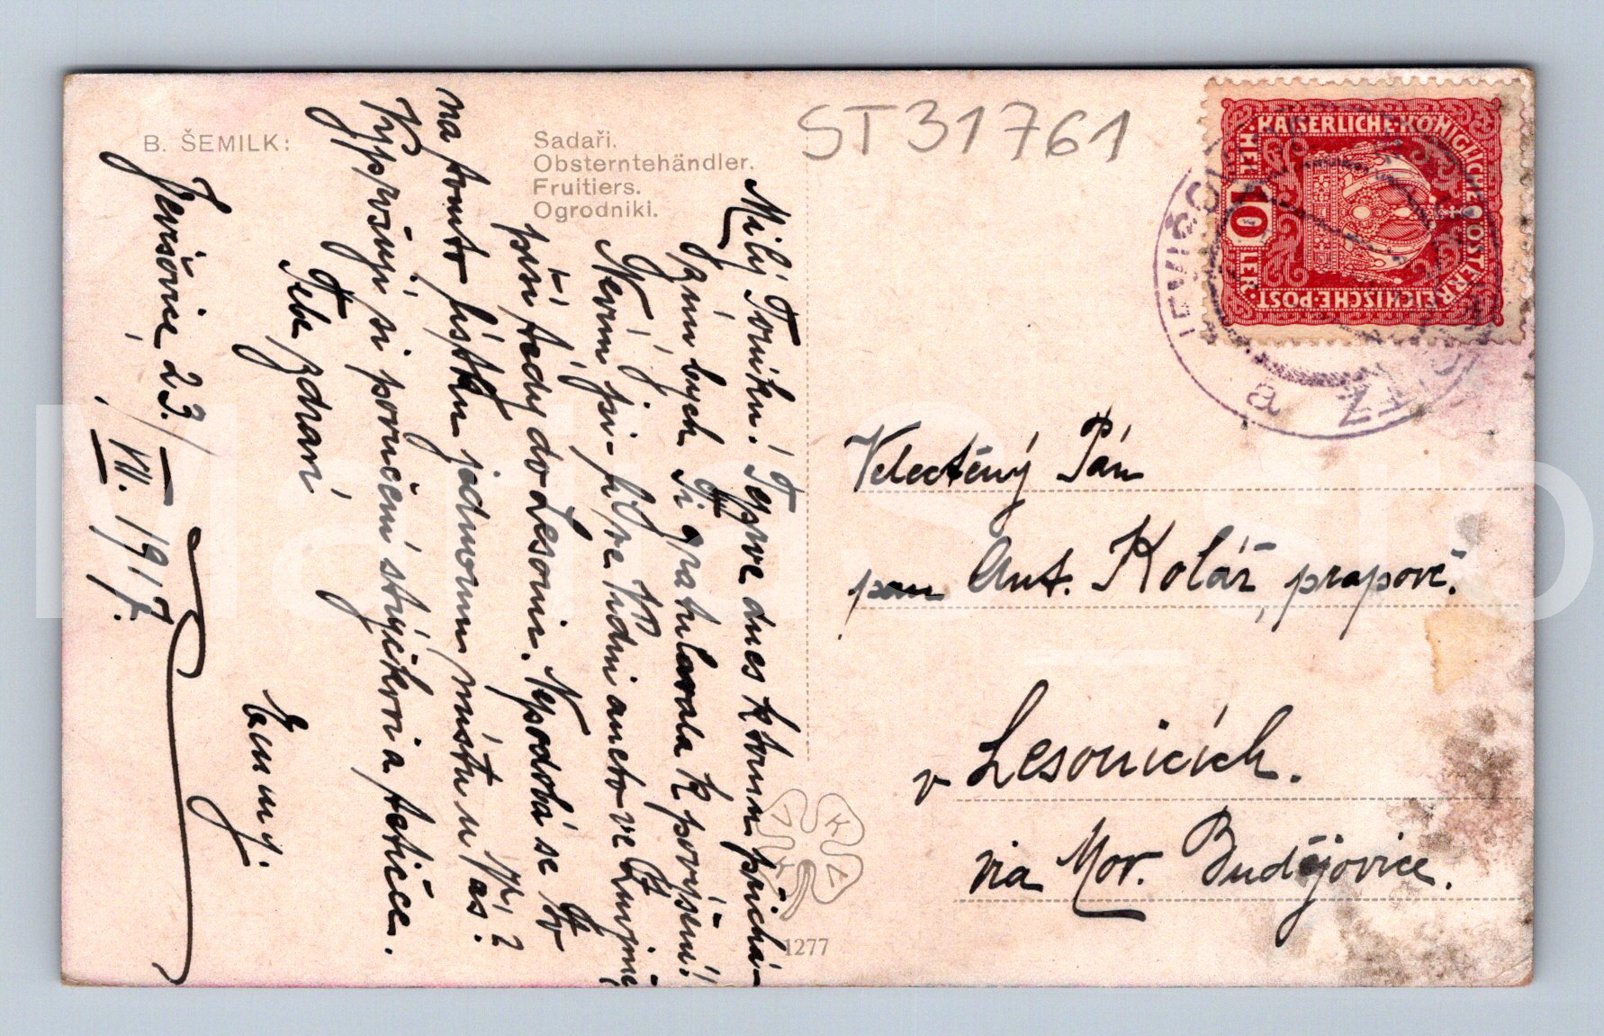 B. ŠEMILK:
Sadaři.
Obsterntehändler.
Fruitiers.
Ogrodniki.
ST31761
KAISERLICHE·KÖNIGLICHE·ÖSTERREICHISCHE·POST
10
HELLER
JEVIŠO
a
Milý Toníku! Teprve dnes k tomu přichá-
zím bych Ti gratulovala k povýšení!
Nevím jsi-li ve Vídni aneb ve
píši tedy do Lesonic. Nepodobá se
na tomto lístku jednomu místu u Vás?
Vyprošuji si poručení strýčkovi a tetičce.
Tebe zdraví
Emmy.
Jevišovice 23./VII. 1917.
Velectěný Pán
pan Ant. Kolář, praporč.
v Lesonicích.
via Mor. Budějovice.
1277